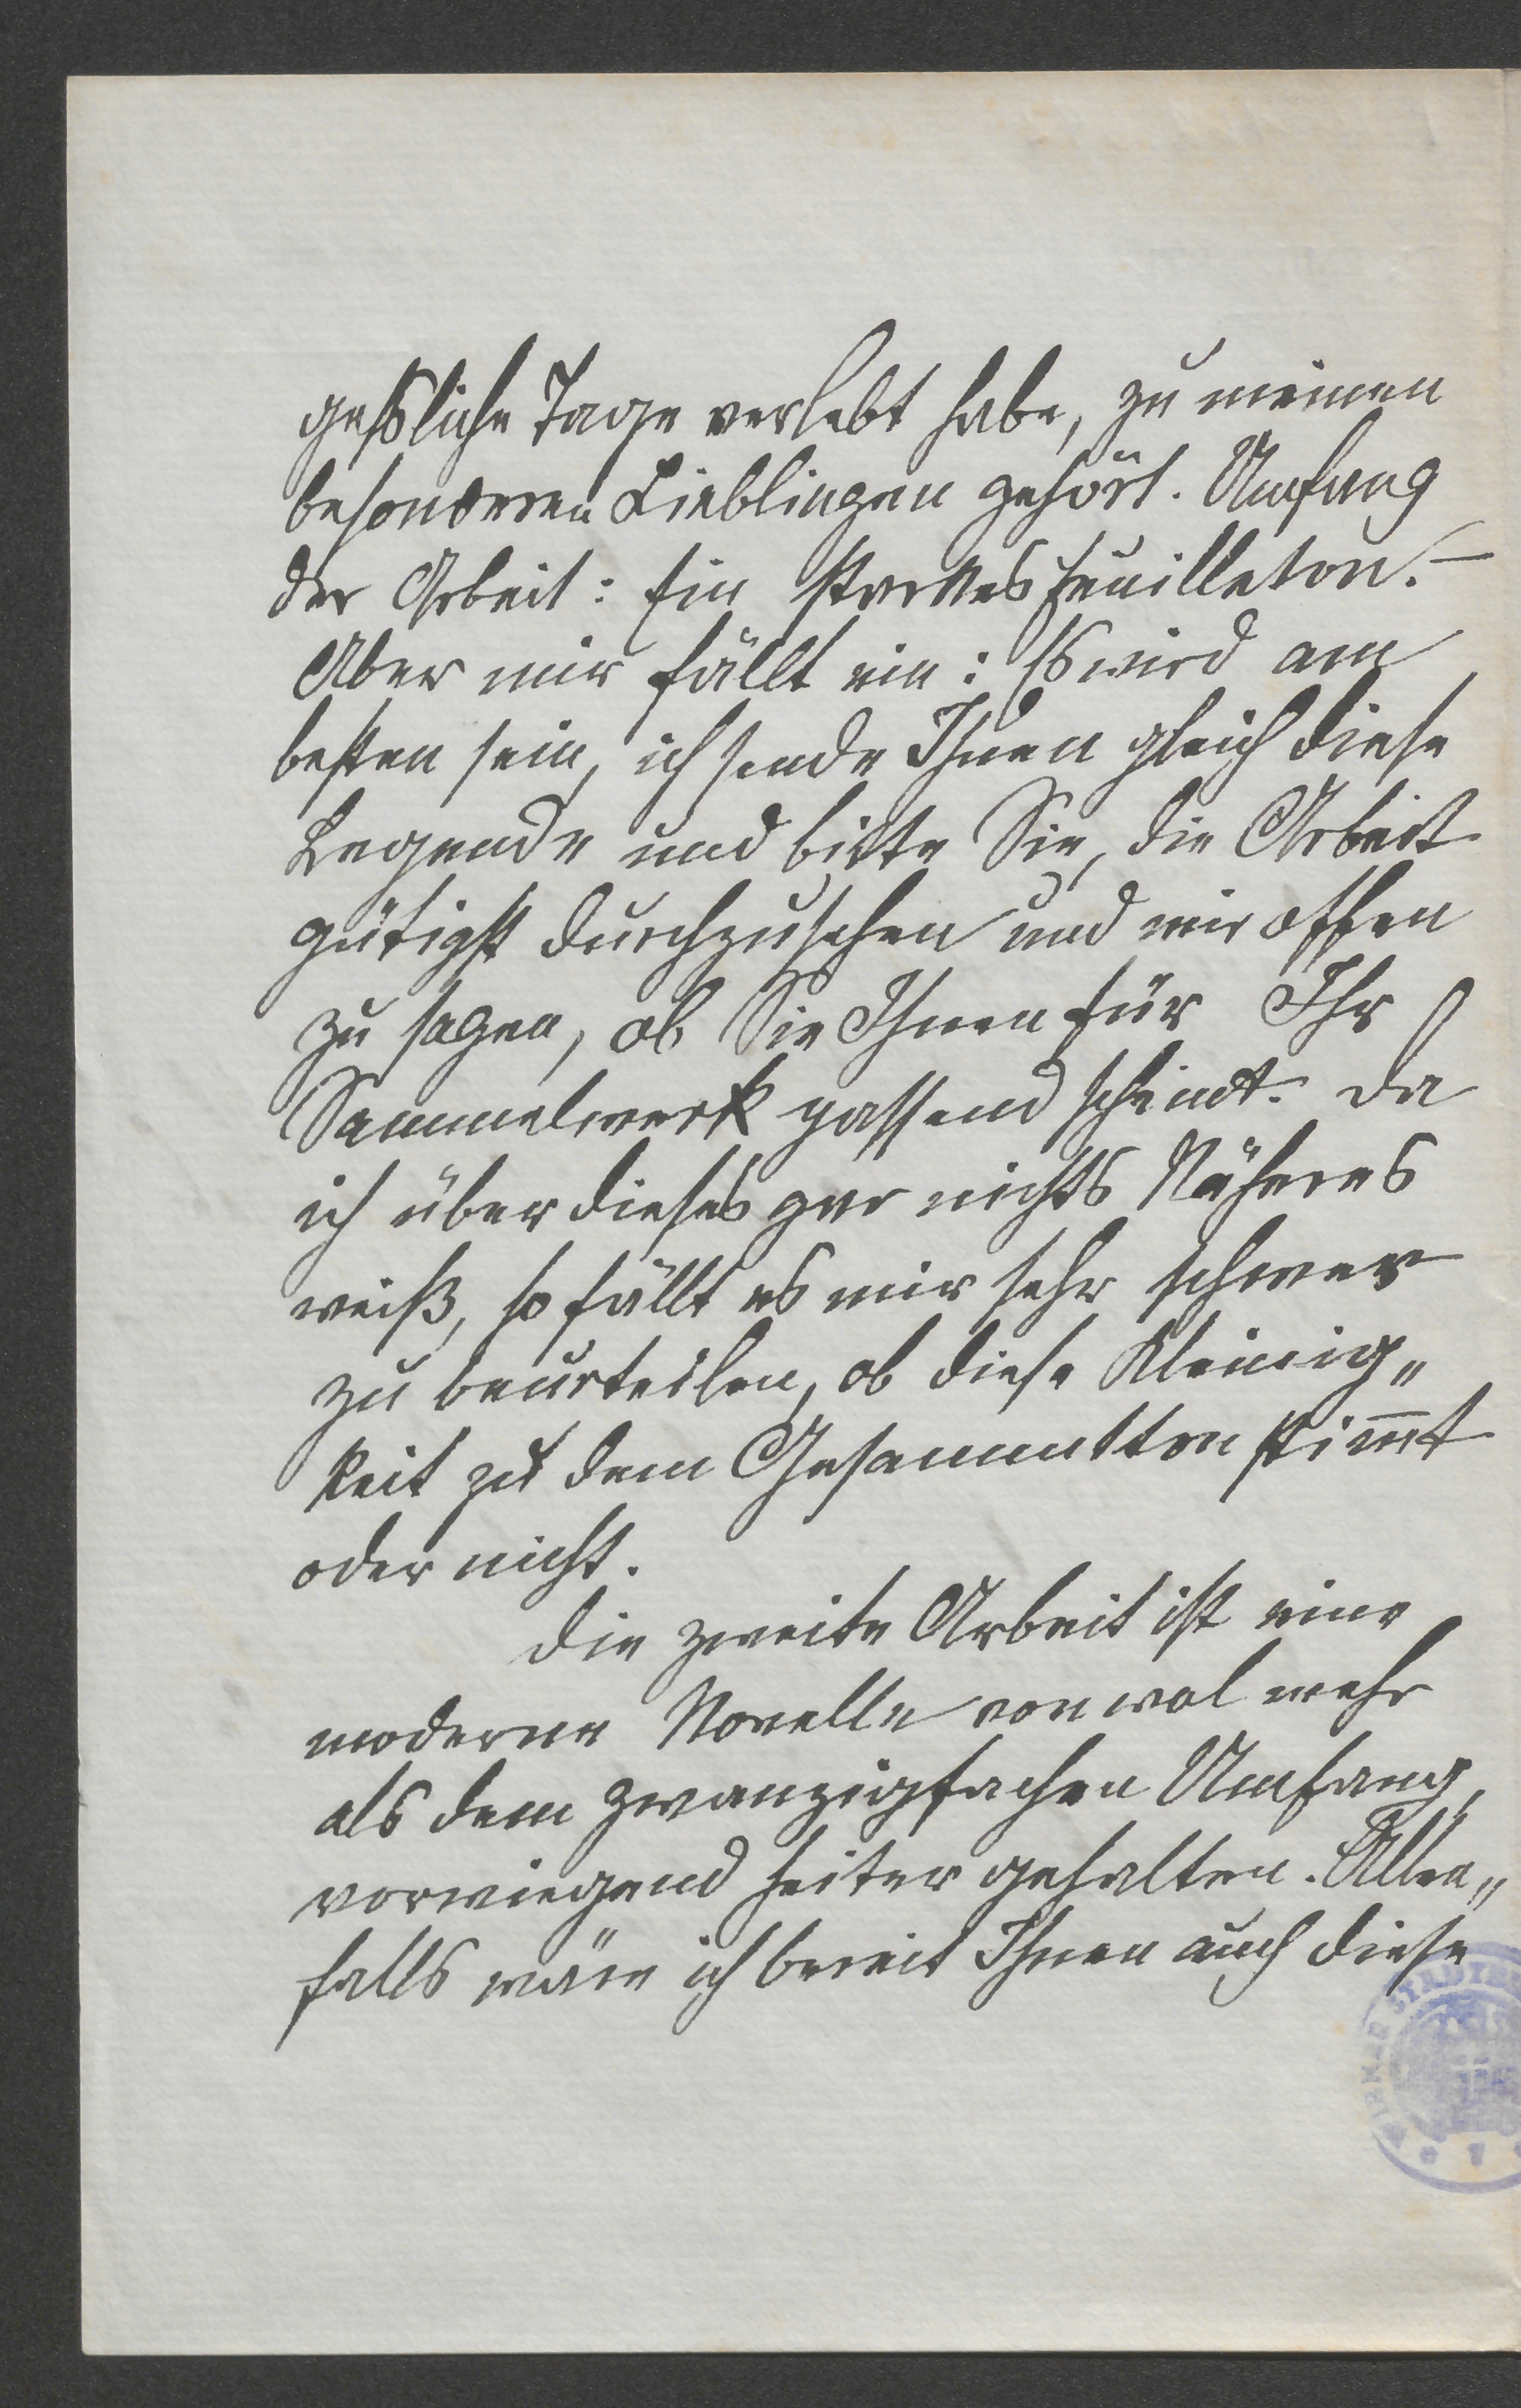 geßliche Tage verlebt habe, zu meinen
besonderen Lieblingen gehört. Umfang
der Arbeit: Ein starkes Feuilleton. –
Aber mir fällt ein: Es wird am
besten sein, ich sende Ihnen gleich diese
Legende und bitte Sie, die Arbeit
gütigst durchzusehen und mir offen
zu sagen, ob Sie Ihnen für Ihr
Sammelwerk passend scheint. Da
ich über dieses gar nichts Näheres
weiß, so fällt es mir sehr schwer
zu beurteilen, ob diese Kleinig„
keit zu dem Gesammtton stim̅t
oder nicht.
Die zweite Arbeit ist eine
moderne Novelle von wol mehr
als dem zwanzigfachen Umfang,
vorwiegend heiter gehalten. Allen„
falls wäre ich bereit Ihnen auch diese